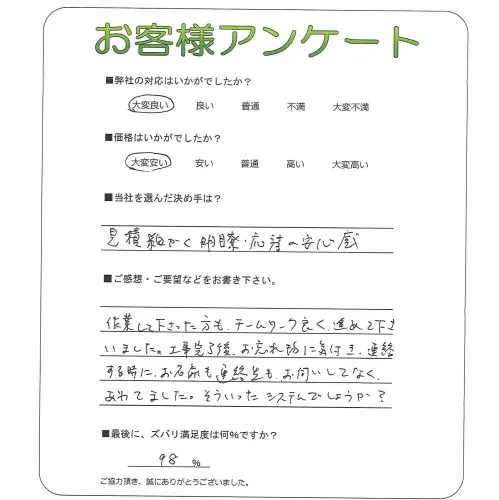 お客様アンケート
■弊社の対応はいかがでしたか？
大変良い 良い 普通 不満 大変不満
■価格はいかがでしたか？
大変安い 安い 普通 高い 大変高い
■当社を選んだ決め手は？
見積細かく明瞭・応対の安心感
■ご感想・ご要望などをお書き下さい。
作業して下さった方も、チームワーク良く、進めて下さ
いました。工事完了後、お忘れ物に気付き、連絡
する時に、お名前も連絡先も、お伺いしてなく、
あわてました。そういったシステムでしょうか？
■最後に、ズバリ満足度は何%ですか？
98 %
ご協力頂き、誠にありがとうございました。